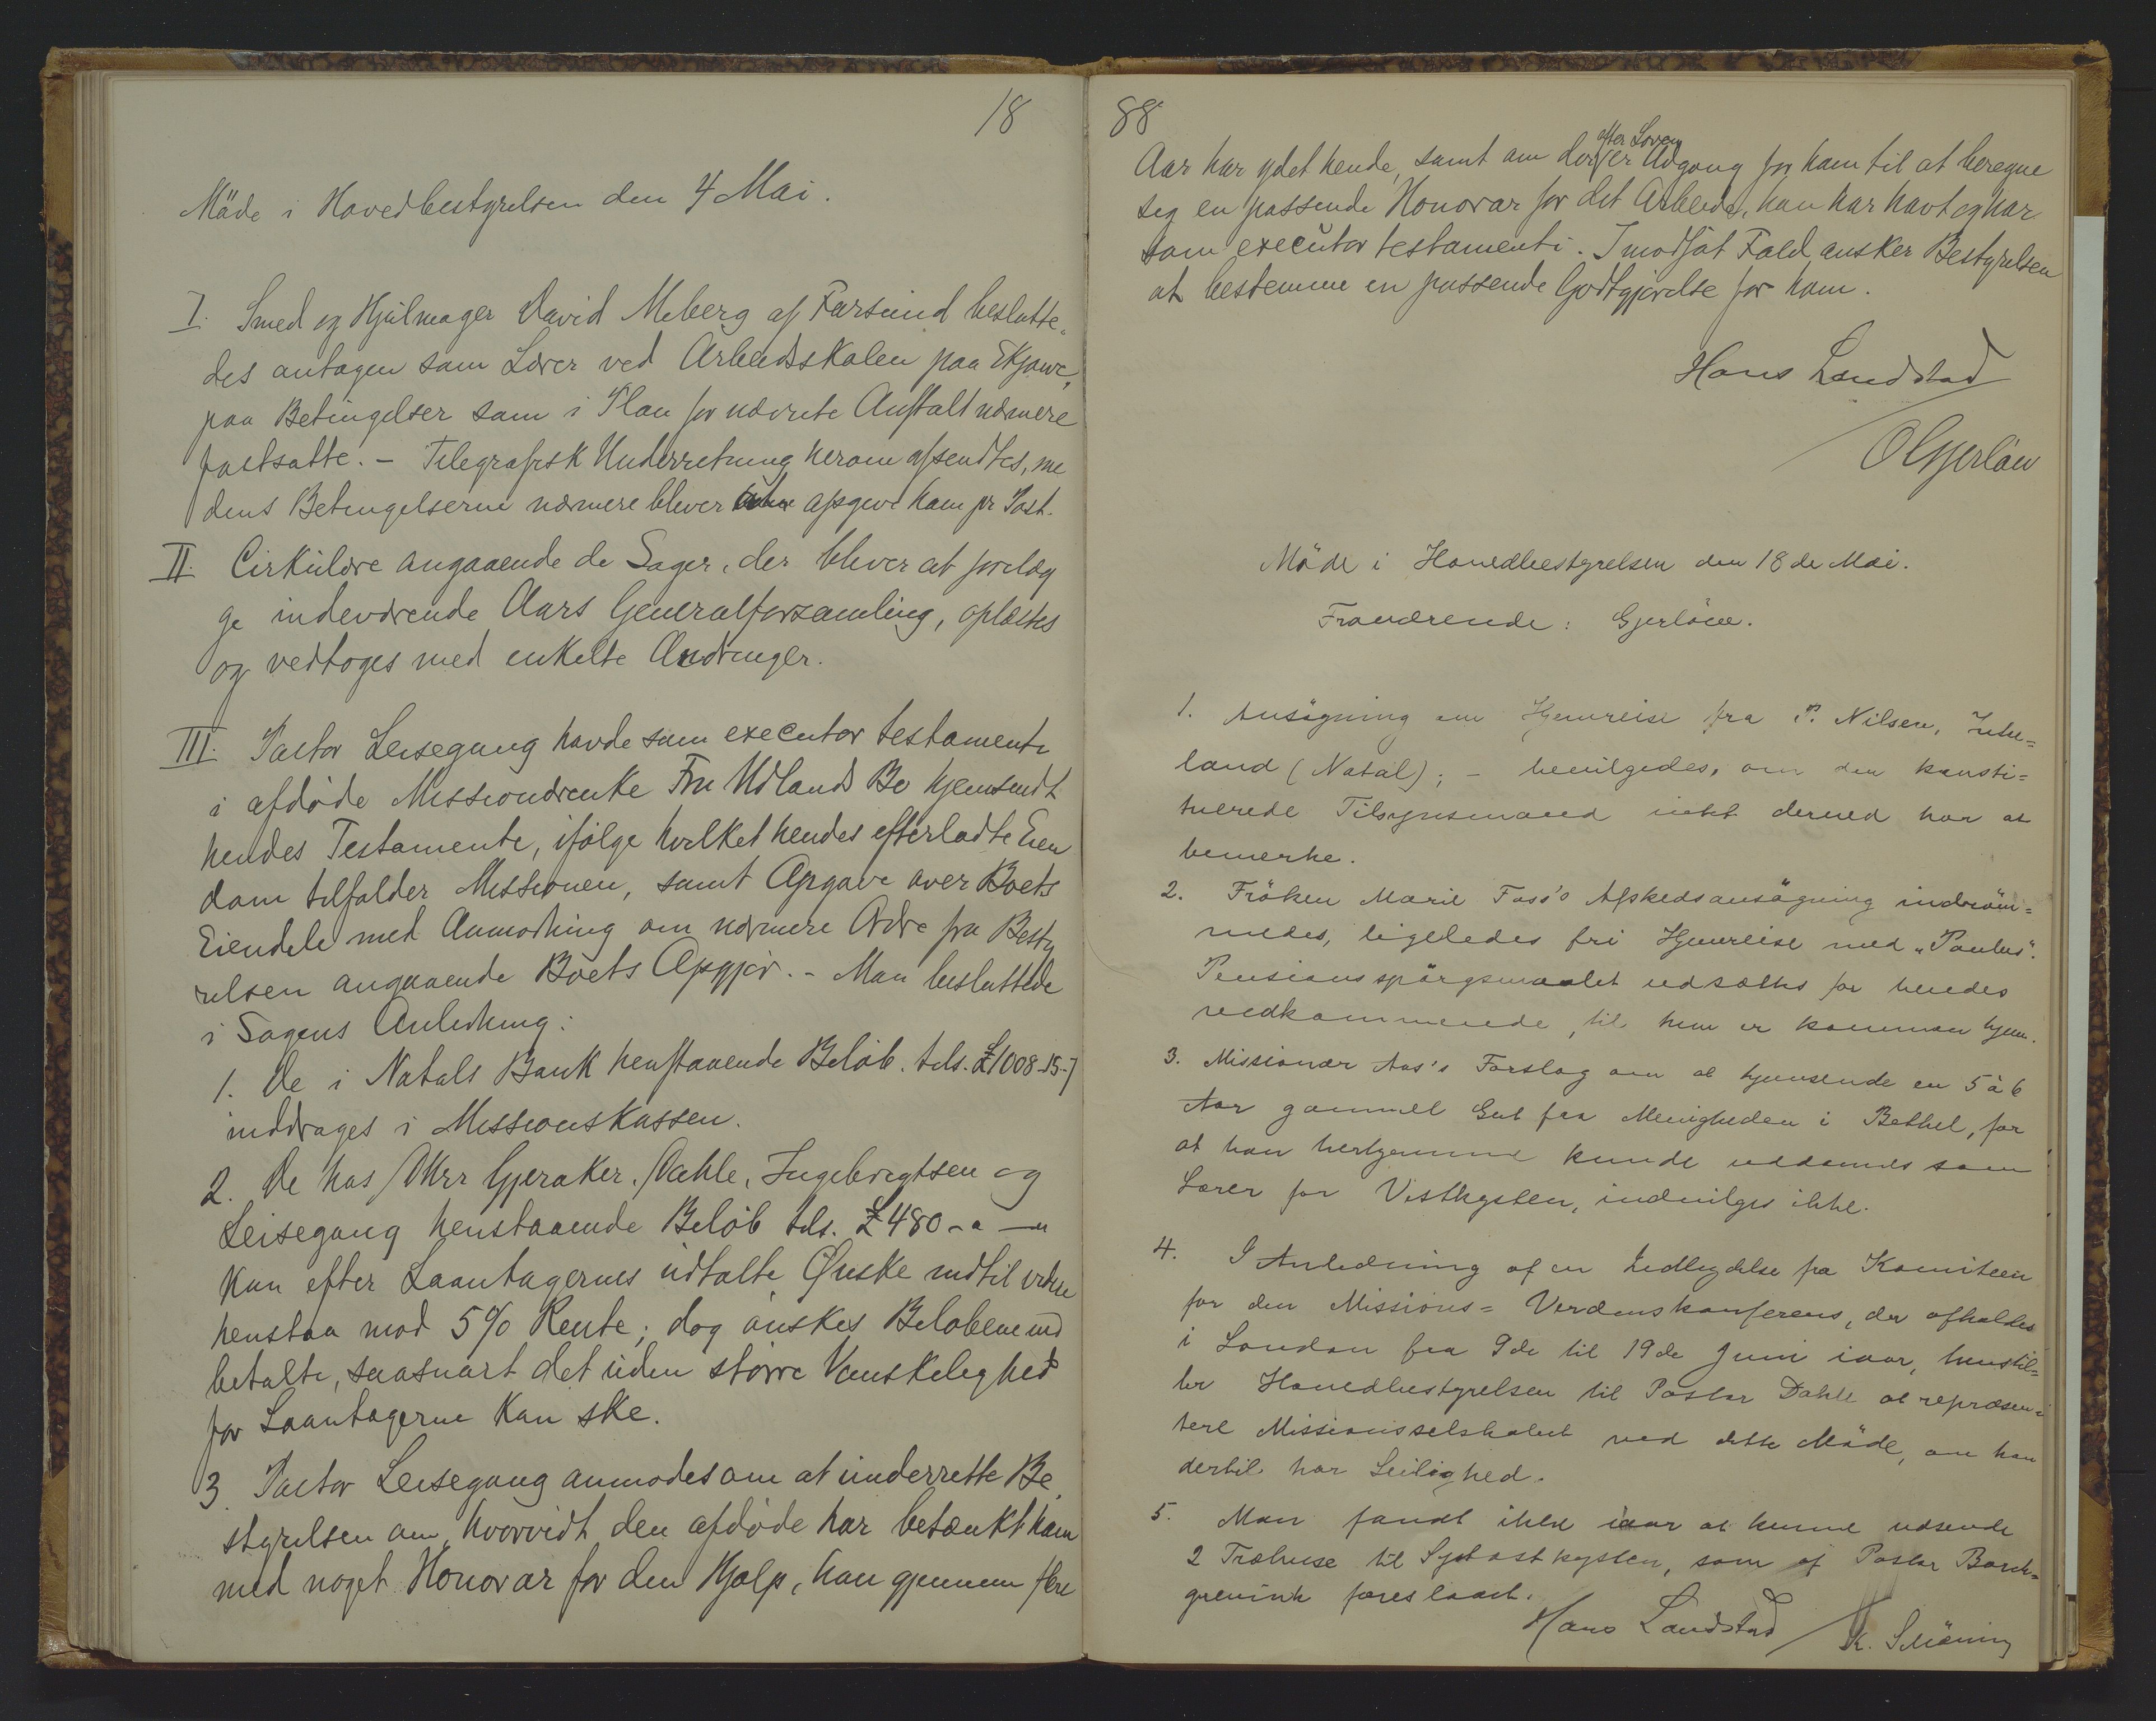 18
Möde i Hovedbestyrelsen den 4 Mai.
I. Smed og Hjulmager David Meberg af Farsund beslutte-
des antagen som Lærer ved Arbeidsskolen paa Ekjowe,
paa Betingelser som i Plan for nævnte Anstalt nærmere
fastsatte. – Telegrafisk Underretning herom afsendtes, me
dens Betingelserne nærmere bliver opgive ham pr Post.
II. Cirkulære angaaende de Sager, der bliver at forelæg
ge indeværende Aars Generalforsamling, oplæstes
og vedtoges med enkelte Ændringer.
III. Pastor Leisegang havde som executor testamenti
i afdöde Missionærenke Fru Udlands Bo hjemsendt
hendes Testamente, ifölge hvilket hendes efterladte Eien
dom tilfalder Missionen, samt Opgave over Boets
Eiendele med Anmodning om nærmere Ordre fra Besty
relsen angaaende Boets Opgjör. – Man besluttede
i Sagens Anledning:
1. De i Natals Bank henstaaende Belöb. tils. £1008-15-7
inddrages i Missionskassen.
2. De hos DHrr Gjeraker, Dahle, Ingebrigtsen og
Leisegang henstaaende Belöb tils. £480 - " - "
kan efter Laantagernes udtalte Ønske indtil videre
henstaa mod 5% Rente; dog önskes Belöbene ind
betalte, saasnart det uden större Vanskelighed
for Laantagerne kan ske.
3. Pastor Leisegang anmodes om at underrette Be
styrelsen om, hvorvidt den afdöde har betænkt ham
med noget Honorar for den Hjælp, han gjennem flere
88
Aar har ydet hende, samt om der efter Loven er Adgang for ham til at beregne
sig en passende Honorar for det Arbeide, han har havt og har
som executor testamenti. I modsat Fald önsker Bestyrelsen
at bestemme en passende Godtgjörelse for ham.
Hans Landstad
O Gjerlöw
Möde i Hovedbestyrelsen den 18de Mai.
Fraværende: Gjerlöw.
1. Ansögning om Hjemreise fra P. Nilsen, Zulu=
land (Natal); – bevilgedes, om den konsti=
tuerede Tilsynsmand intet derved har at
bemerke.
2. Fröken Marie Foss's Afskedsansögning indröm=
medes, ligeledes fri Hjemreise med „Paulus".
Pensionsspörgsmaalet udsættes for hendes
vedkommende, til hun er kommen hjem.
3. Missionær Aas's Forslag om at hjemsende en 5 à 6
Aar gammel Gut fra Menigheden i Bethel, for
at han herhjemme kunde uddannes som
Lærer for Vestkysten, indvilges ikke.
4. I Anledning af en Indbydelse fra Komiteen
for den Missions=Verdenskonferens, der afholdes
i London fra 9de til 19de Juni iaar, henstil=
ler Hovedbestyrelsen til Pastor Dahle at repræsen=
tere Missionsselskabet ved dette Möde, om han
dertil har Leilighed.
5. Man fandt ikke iaar at kunne udsende
2 Træhuse til Sydostkysten, som af Pastor Borch=
grevink foreslaaet.
Hans Landstad K. Schöning